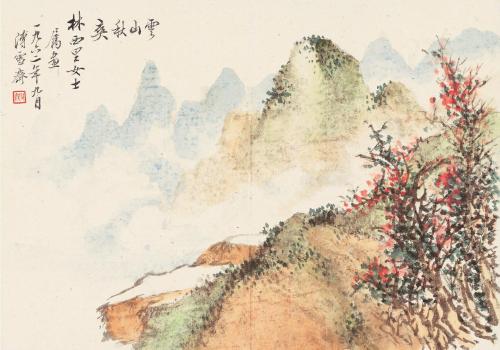 雲山秋爽
林西里女士
屬畫
一九六二年九月
溥雪齋